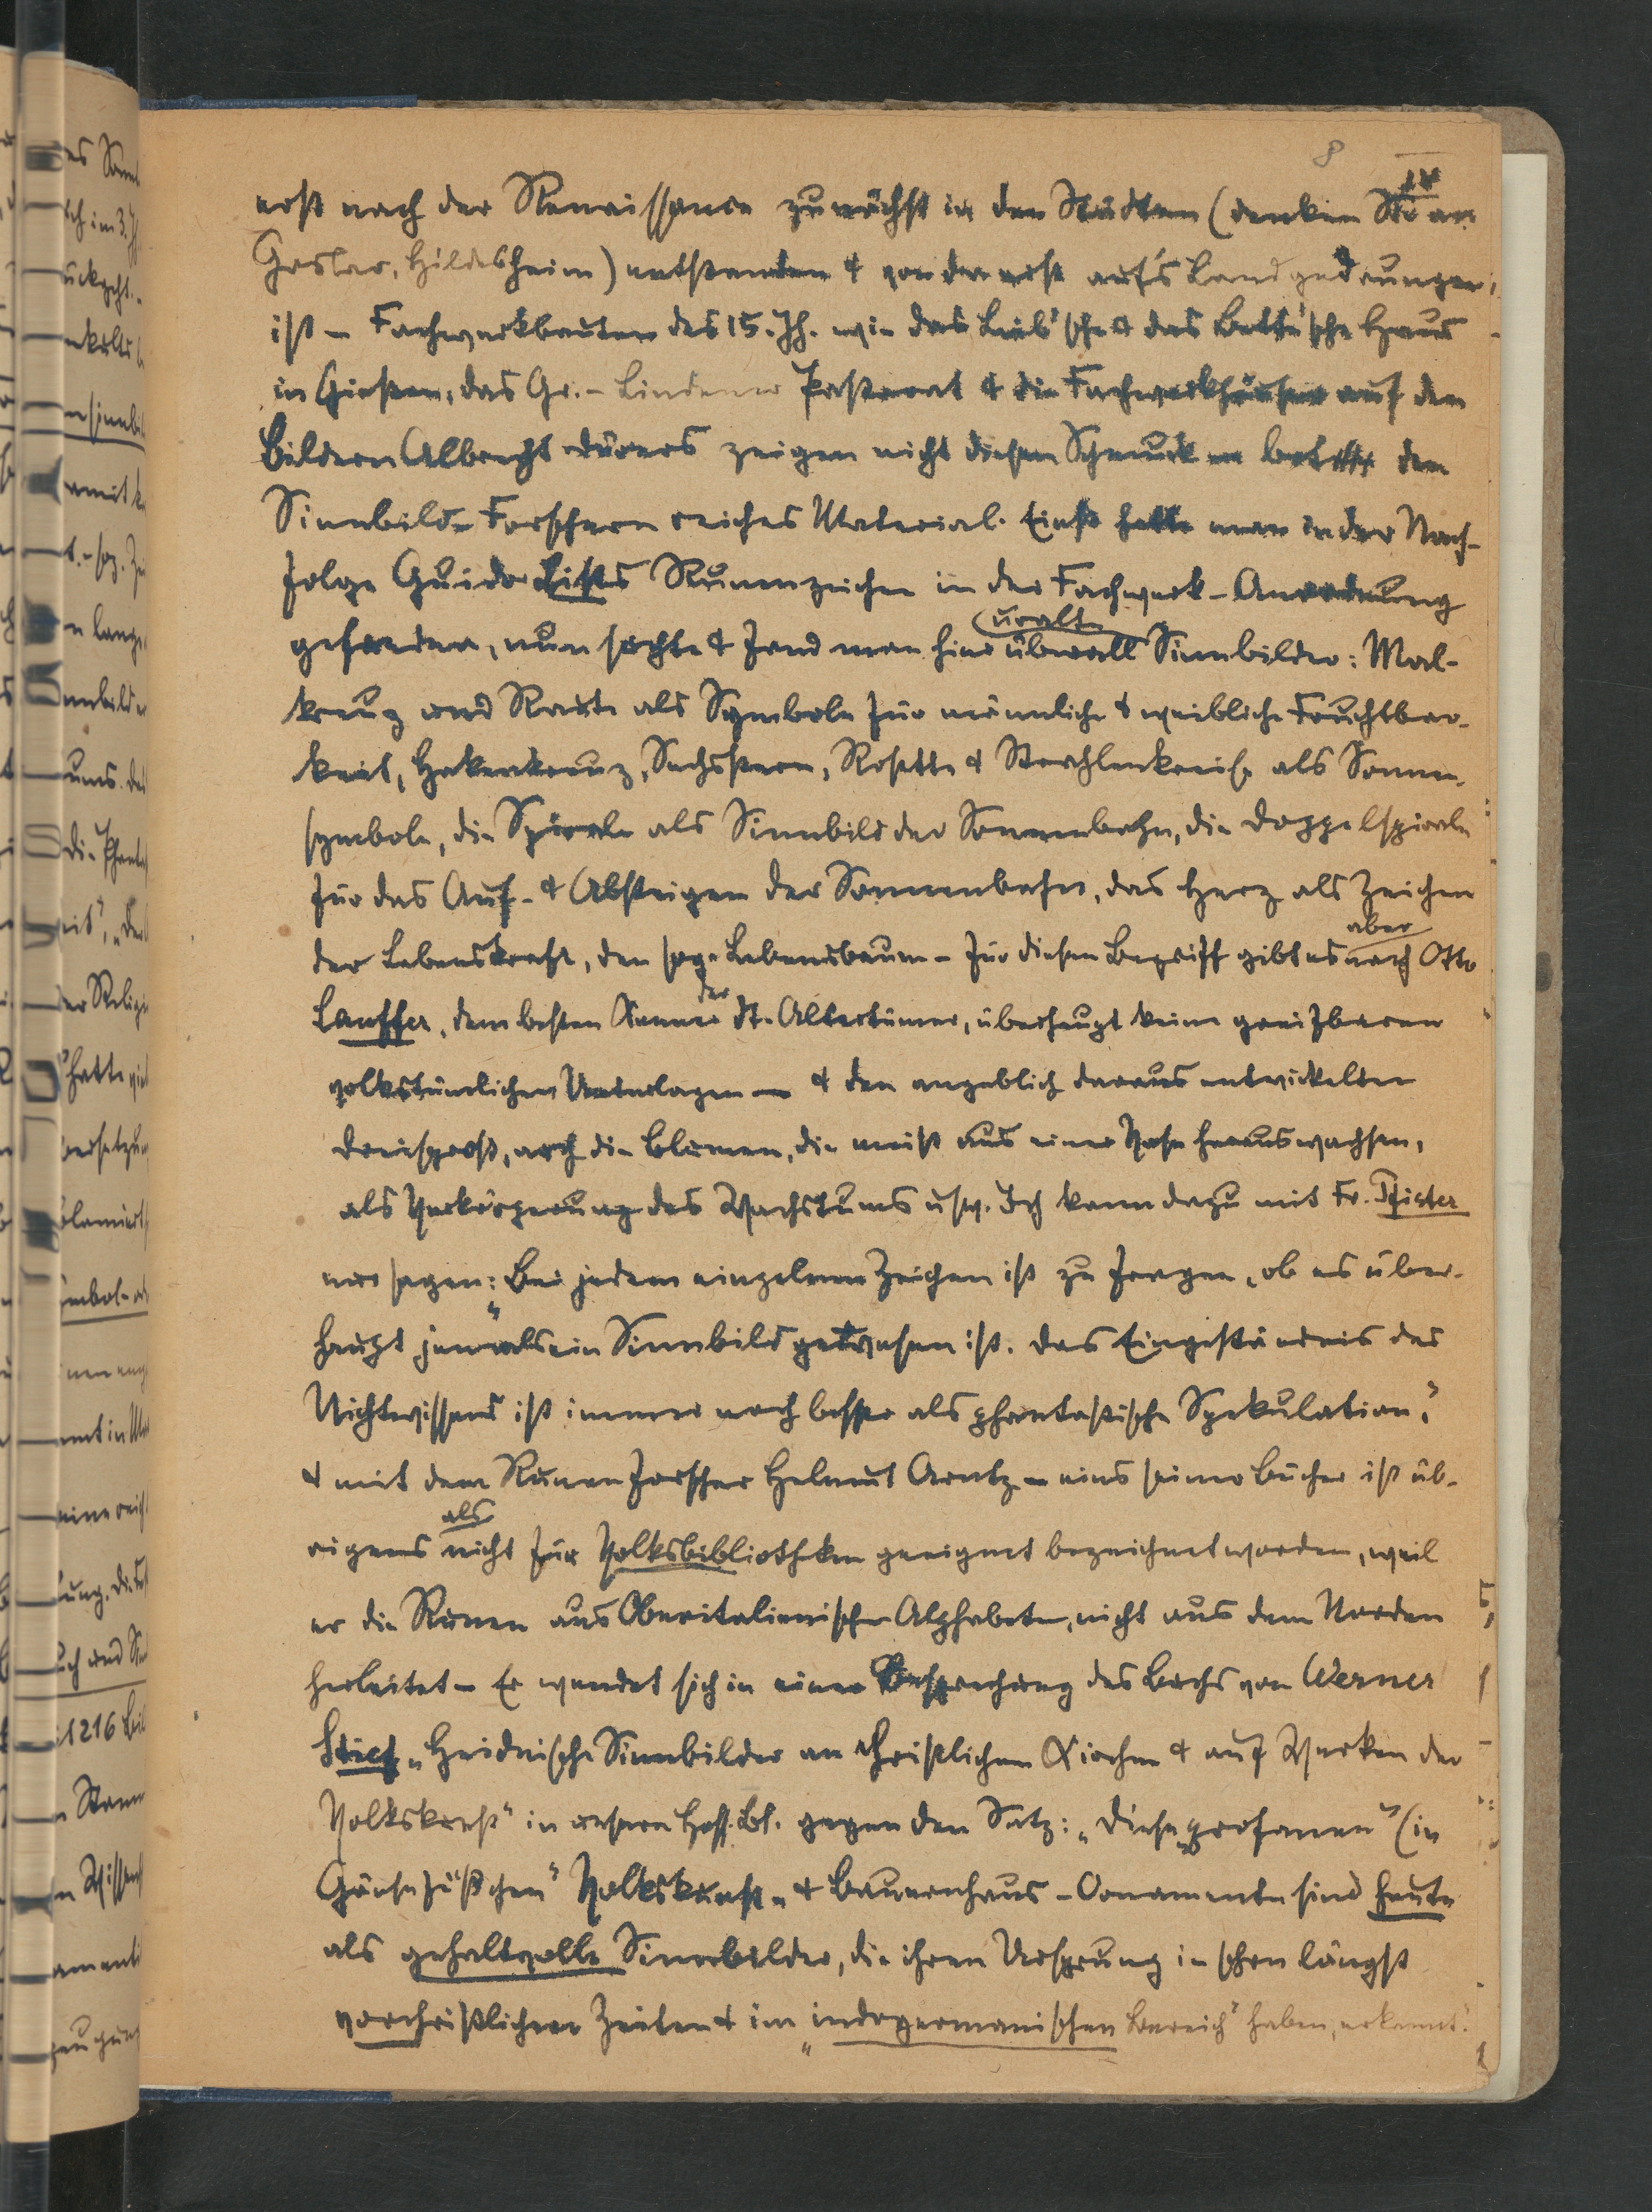 8
IV
erst nach der Renaissance zunächst in den Städten (denken Sie an
Goslar, Hildesheim) entstanden & von da erst auf's Land gedrungen
ist – Fachwerkbauten des 15. Jh. wie das Leib'sche & das Bette'sche Haus
in Gießen, das Gr.-Lindener Pastorat & die Fachwerkhäuser auf den
Bildern Albrecht Dürers zeigen nicht diesen Schmuck – bot den
Sinnbild-Forschern reiches Material. Einst hatte man in der Nach-
folge Guido Lists Runenzeichen in der Fachwerk-Anordnung
gefunden, nun suchte & fand man hier überall uralte Sinnbilder: Mal-
kreuz und Raute als Symbole für männliche & weibliche Fruchtbar-
keit, Hakenkreuz, Sechsstern, Rosette & Strahlenkreise als Sonnen-
symbole, die Spirale als Sinnbild der Sonnenbahn, die Doppelspirale
für das Auf- & Absteigen der Sonnenbahn, das Herz als Zeichen
der Lebenskraft, den sog. Lebensbaum – für diesen Begriff gibt es aber nach Otto
Lauffer, dem besten Kenner der dt. Altertümer, überhaupt keine greifbaren
volkstümlichen Unterlagen – & den angeblich daraus entwickelten
Dreispross, auch die Blumen, die meist aus einer Vase herauswachsen,
als Verkörperung des Wachstums usw. Ich kann dazu mit Fr. Pfister
nur sagen: „Bei jedem einzelnen Zeichen ist zu fragen, ob es über-
haupt jemals ein Sinnbild gewesen ist. Das Eingeständnis des
Nichtwissens ist immer noch besser als phantastische Spekulation“,
& mit dem Runenforscher Helmut Arntz – eins seiner Bücher ist üb-
rigens als nicht für Volksbibliotheken geeignet bezeichnet worden, weil
er die Runen aus Oberitalienischen Alphabeten, nicht aus dem Norden
herleitet – Er wendet sich in einer Besprechung des Buchs von Werner
Stief „Heidnische Sinnbilder an christlichen Kirchen & auf Werken der
Volkskunst“ in unsern Hess. Bl. gegen den Satz: „Diese „profanen“ (in
Gänsefüßchen“ Volkskunst- & Bauernhaus-Ornamente sind heute
als gehaltvolle Sinnbilder, die ihren Ursprung in schon längst
vorchristlichen Zeiten & im „indogermanischen Bereich“ haben, erkannt.“